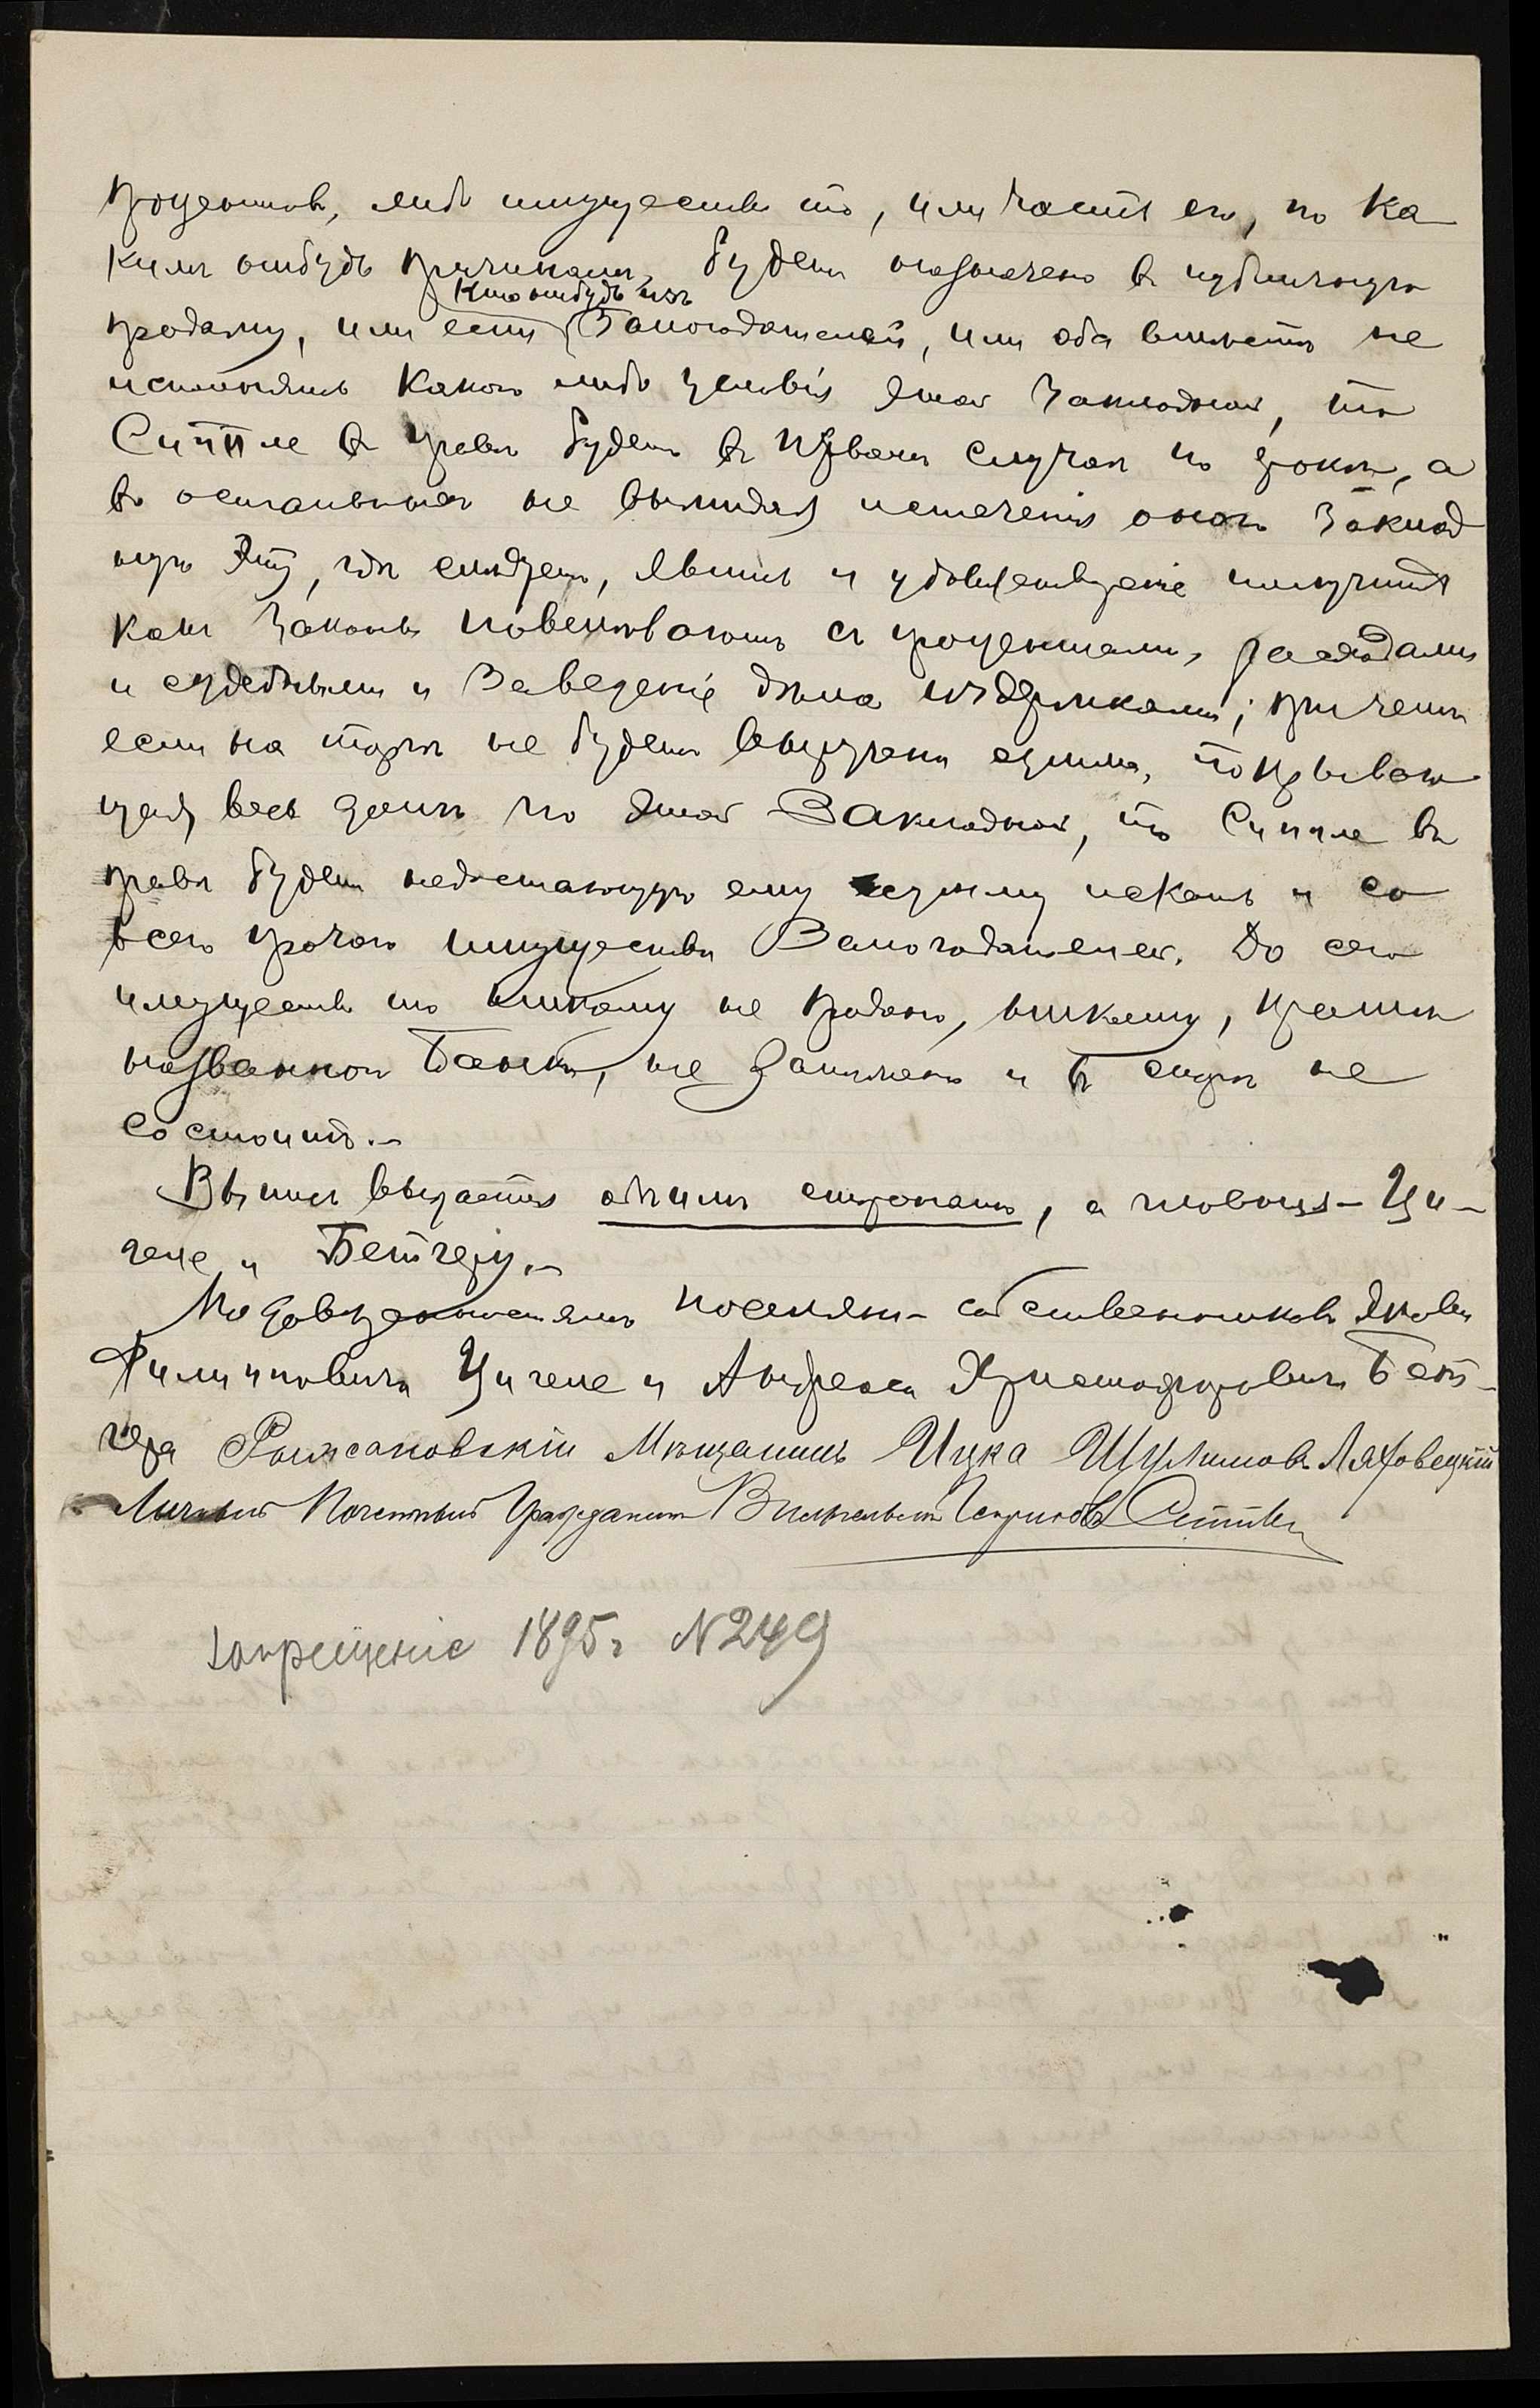 процентовъ, либо имущество то, или часть его, по ка
кимъ нибудь причинамъ, будетъ назначено въ публичную
кто нибудь изъ
продажу, или если Залогодателей, или оба вместе не
исполнятъ какого либо условія этой Закладной, то
Сиппле въ праве будетъ въ первомъ случае по сроке, а
въ остальныхъ не выжидая истеченія онаго Заклад
ную эту, где следуетъ, явить и удовлетвореніе получить
какъ законы повелеваютъ съ процентами, расходами
и судебными и За веденіе дела издержками; при чемъ
если на торге не будетъ выручена сумма, покрываю
щая весь долгъ по этой Закладной, то Сиппле въ
праве будетъ недостающую ему сумму искать и со
всего прочаго имущества Залогодателей. До сего
имущество то никому не продано, никому, кроме
названнаго Банка, не заложено и въ споре не
состоитъ.-
Выпись выдается обеимъ сторонамъ, а главная - Ци-
геле и Бетхеру.-
По доверенностямъ поселянъ-собственниковъ Якова
Филипповича Цигеле и Андреаса Христофоровича Бет-
хера Рымсановскій Мѣщанинъ Ицка Шулимовъ Ляховецкій
Личный Почетный Гражданинъ Вильгельмъ Генриховъ Сиппле
запрещеніе 1895г N 249